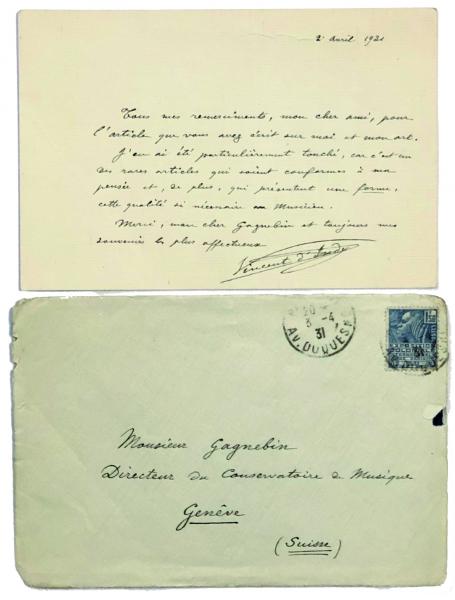 2 avril 1931
Tous mes remerciments, mon cher ami, pour
l'article que vous avez écrit sur moi et mon art.
J'en ai été particulièrement touché, car c'est un
des rares articles qui soient conformes à ma
pensée et, de plus, qui présentent une forme,
cette qualité si nécessaire au Musicien.
Merci, mon cher Gagnebin et toujours mes
souvenirs les plus affectueux
Vincent d'Indy
20
3 - 4
31
AV. DUQUESNE
Monsieur Gagnebin
Directeur du Conservatoire de Musique
Genève
(Suisse)